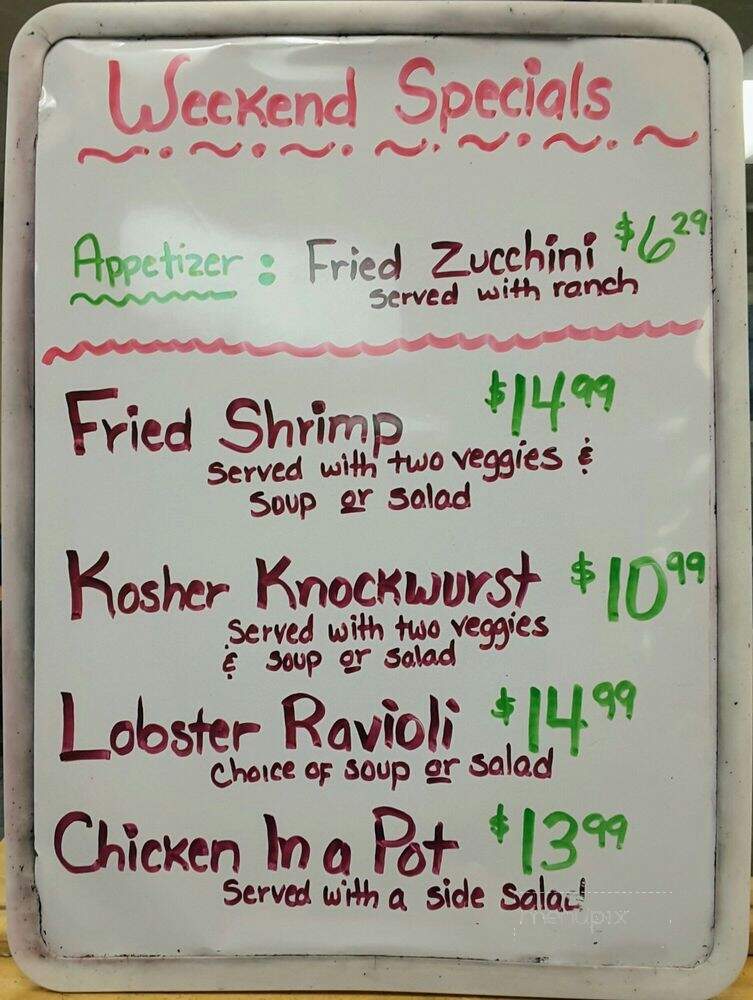 Weekend Specials
Appetizer : Fried Zucchini $6.29
served with ranch
Fried Shrimp $14.99
served with two veggies &
soup or salad
Kosher Knockwurst $10.99
served with two veggies
& soup or salad
Lobster Ravioli $14.99
choice of soup or salad
Chicken In a Pot $13.99
served with a side salad
menupix